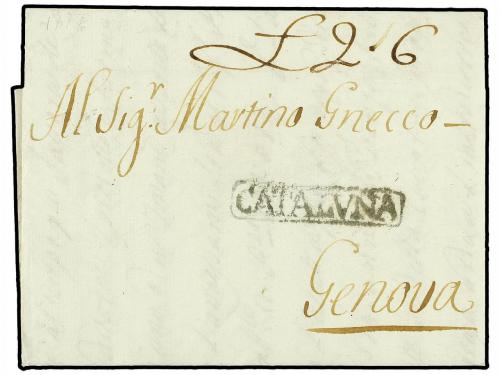 £ 2 6
Al Sigr. Martino Gnecco -
CATALVNA
Genova